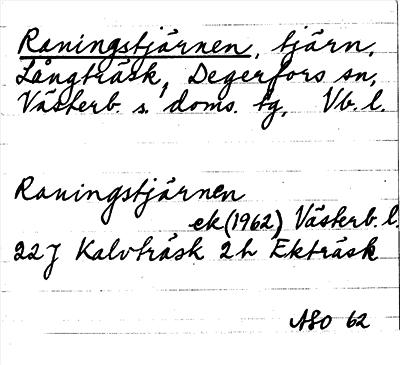 Raningstjärnen, tjärn,
Långträsk, Degerfors sn,
Västerb. s. doms. tg, Vb. l.
Raningstjärnen
ek (1962) Västerb. l.
22J Kalvträsk 2h Ekträsk
ASO 62